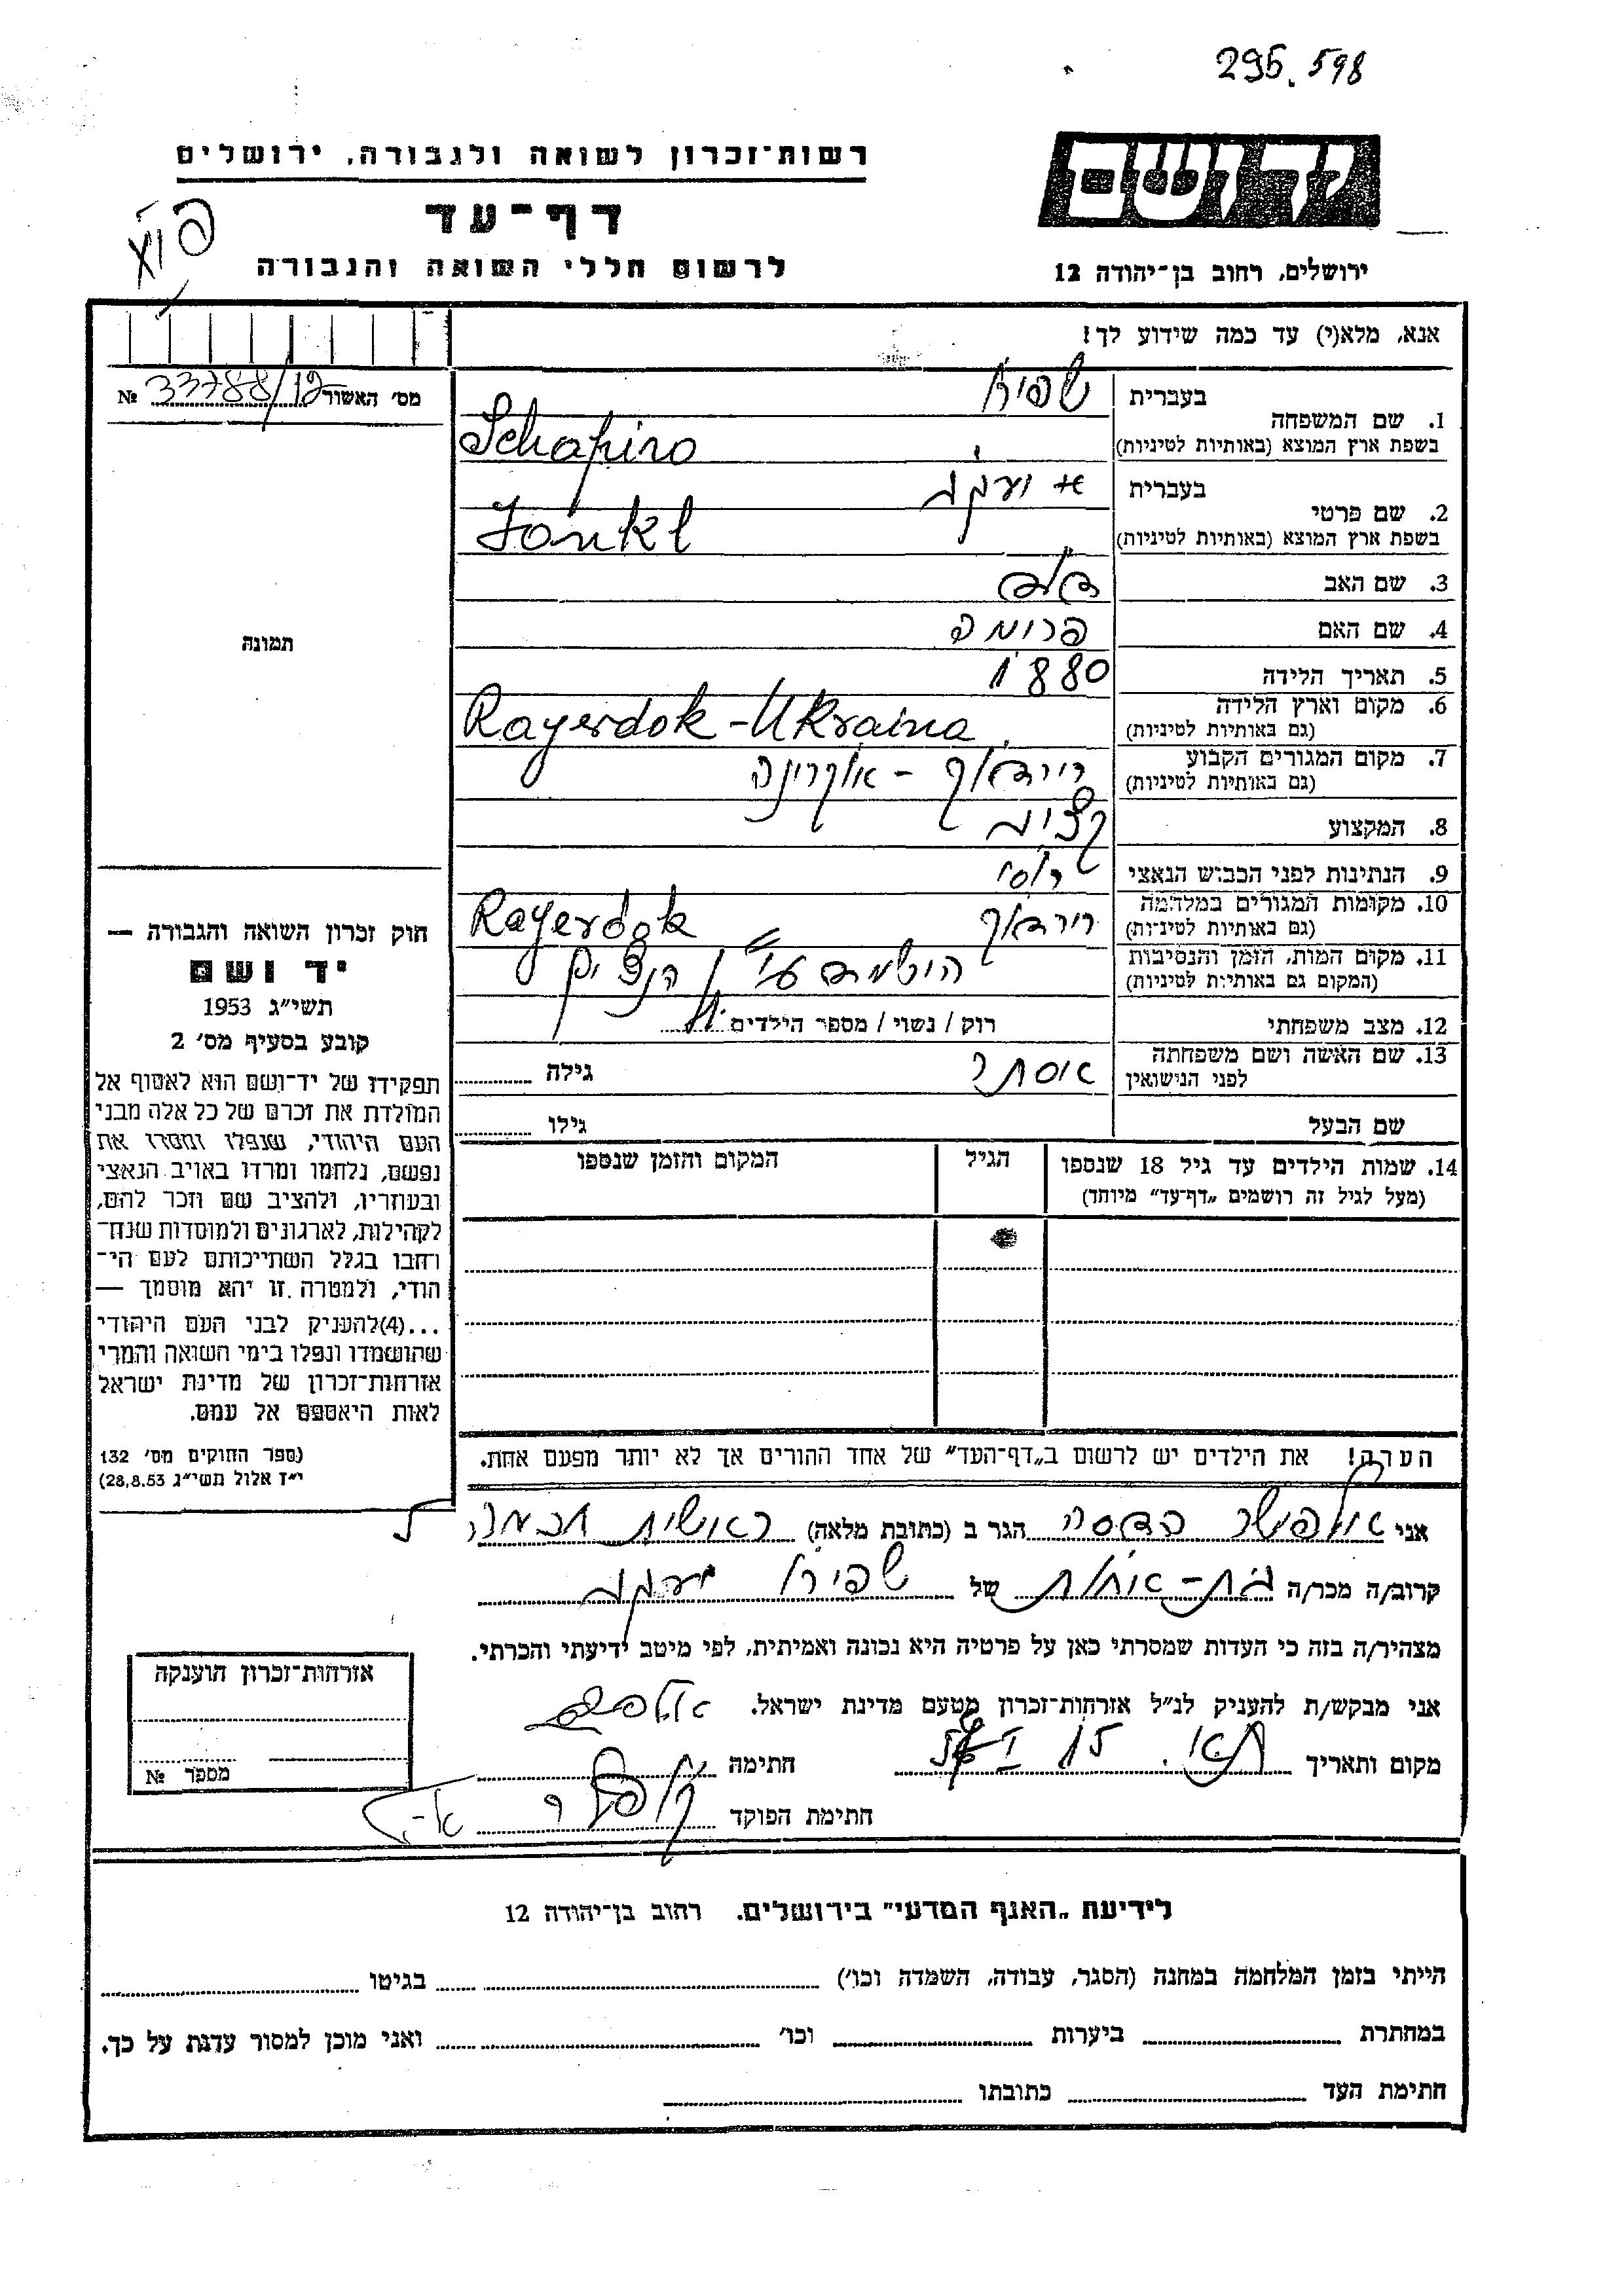 295.598
רשות־זכרון לשואה ולגבורה, ירושלים
יד ושם
דף־עד
לרשום חללי השואה והגבורה
ירושלים, רחוב בן־יהודה 12
אנא, מלא(י) עד כמה שידוע לך!
מס׳ האשור 33788/12 №
1. שם המשפחה
בעברית שפירא
בשפת ארץ המוצא (באותיות לטיניות) Schapiro
2. שם פרטי
בעברית יעקב
בשפת ארץ המוצא (באותיות לטיניות) Jankl
3. שם האב
4. שם האם פרומה
5. תאריך הלידה 1880
6. מקום וארץ הלידה
(גם באותיות לטיניות) Rayerdok - Ukraina
7. מקום המגורים הקבוע
(גם באותיות לטיניות) - אוקרינה
8. המקצוע קצב
9. הנתינות לפני הכבוש הנאצי רוסי
10. מקומות המגורים במלחמה
(גם באותיות לטיניות) Rayerdok
11. מקום המות, הזמן והנסיבות
(המקום גם באותיות לטיניות) הושמד ע״י הנצים
12. מצב משפחתי רוק / נשוי / מספר הילדים
13. שם האשה ושם משפחתה
לפני הנישואין אסתר גילה
שם הבעל גילו
14. שמות הילדים עד גיל 18 שנספו הגיל המקום והזמן שנספו
(מעל לגיל זה רושמים „דף־עד״ מיוחד)
הערה! את הילדים יש לרשום ב„דף־העד״ של אחד ההורים אך לא יותר מפעם אחת.
תמונה
חוק זכרון השואה והגבורה —
יד ושם
תשי״ג 1953
קובע בסעיף מס׳ 2
תפקידו של יד־ושם הוא לאסוף אל
המולדת את זכרם של כל אלה מבני
העם היהודי, שנפלו ומסרו את
נפשם, נלחמו ומרדו באויב הנאצי
ובעוזריו, ולהציב שם וזכר להם,
לקהילות, לארגונים ולמוסדות שנח־
רחבו בגלל השתייכותם לעם הי־
הודי, ולמטרה זו יהא מוסמך —
...(4)להעניק לבני העם היהודי
שהושמדו ונפלו בימי השואה והמרי
אזרחות־זכרון של מדינת ישראל
לאות היאספם אל עמם.
(ספר החוקים מס׳ 132
י״ז אלול תשי״ג 28,8.53)
אני הדסה הגר ב (כתובת מלאה) ראשית חכמה 5
קרוב/ה מכר/ה בת־אחות של שפירא יעקב
מצהיר/ה בזה כי העדות שמסרתי כאן על פרטיה היא נכונה ואמיתית, לפי מיטב ידיעתי והכרתי.
אני מבקש/ת להעניק לנ״ל אזרחות־זכרון מטעם מדינת ישראל.
מקום ותאריך חתימה
חתימת הפוקד
אזרחות־זכרון הוענקה
מספר №
לידיעת „האגף המדעי״ בירושלים. רחוב בן־יהודה 12
הייתי בזמן המלחמה במחנה (הסגר, עבודה, השמדה וכו׳) בגיטו
במחתרת ביערות וכו׳ ואני מוכן למסור עדות על כך.
חתימת העד כתובתו